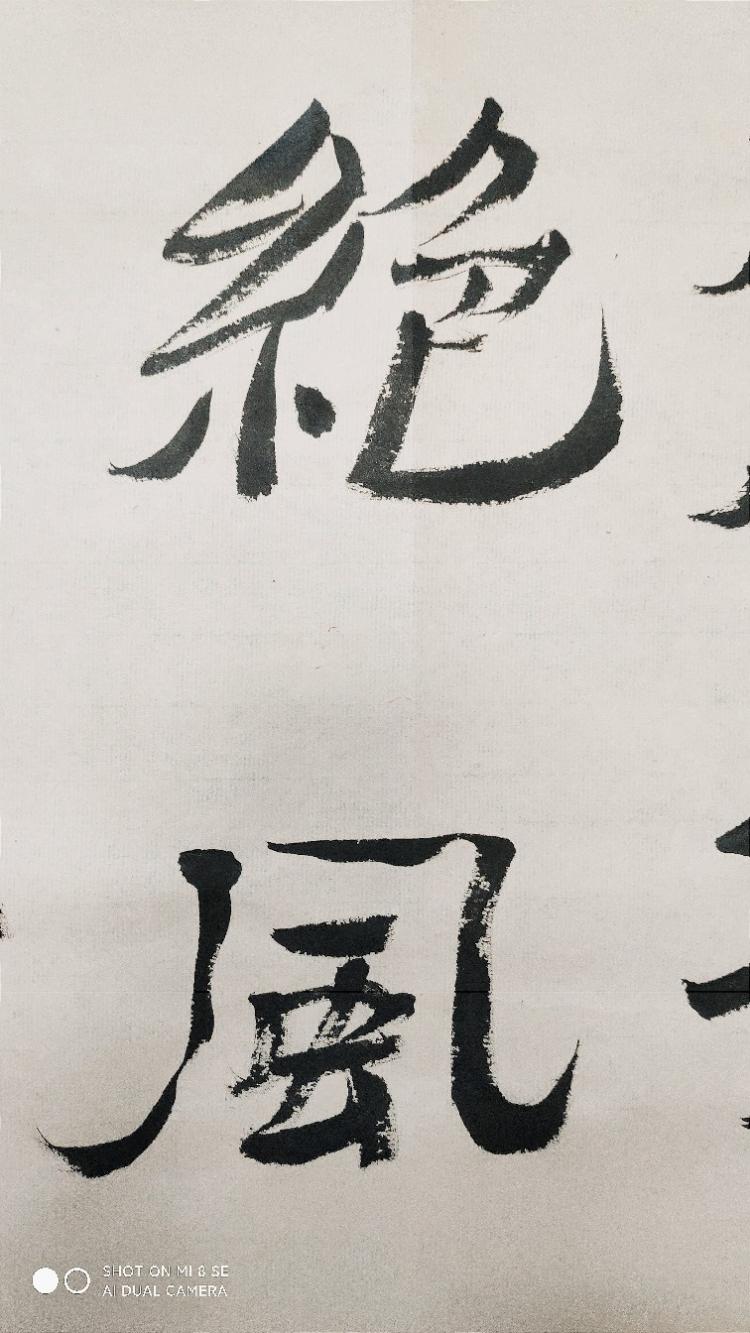 絕
風
SHOT ON MI 8 SE
AI DUAL CAMERA